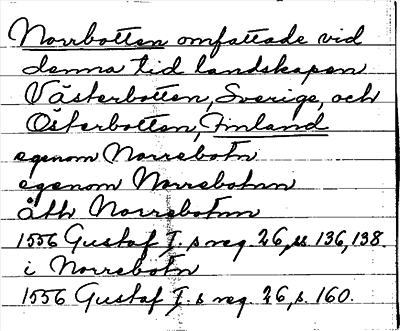 Norrbotten omfattade vid
denna tid landskapen
Västerbotten, Sverige, och
Österbotten, Finland
egenom Norrebotn
egenom Norrebotnn
åth Norrebotnn
1556 Gustaf I. s reg. 26, ss 136, 138.
i Norrebotn
1556 Gustaf I. s reg. 26, s. 160.